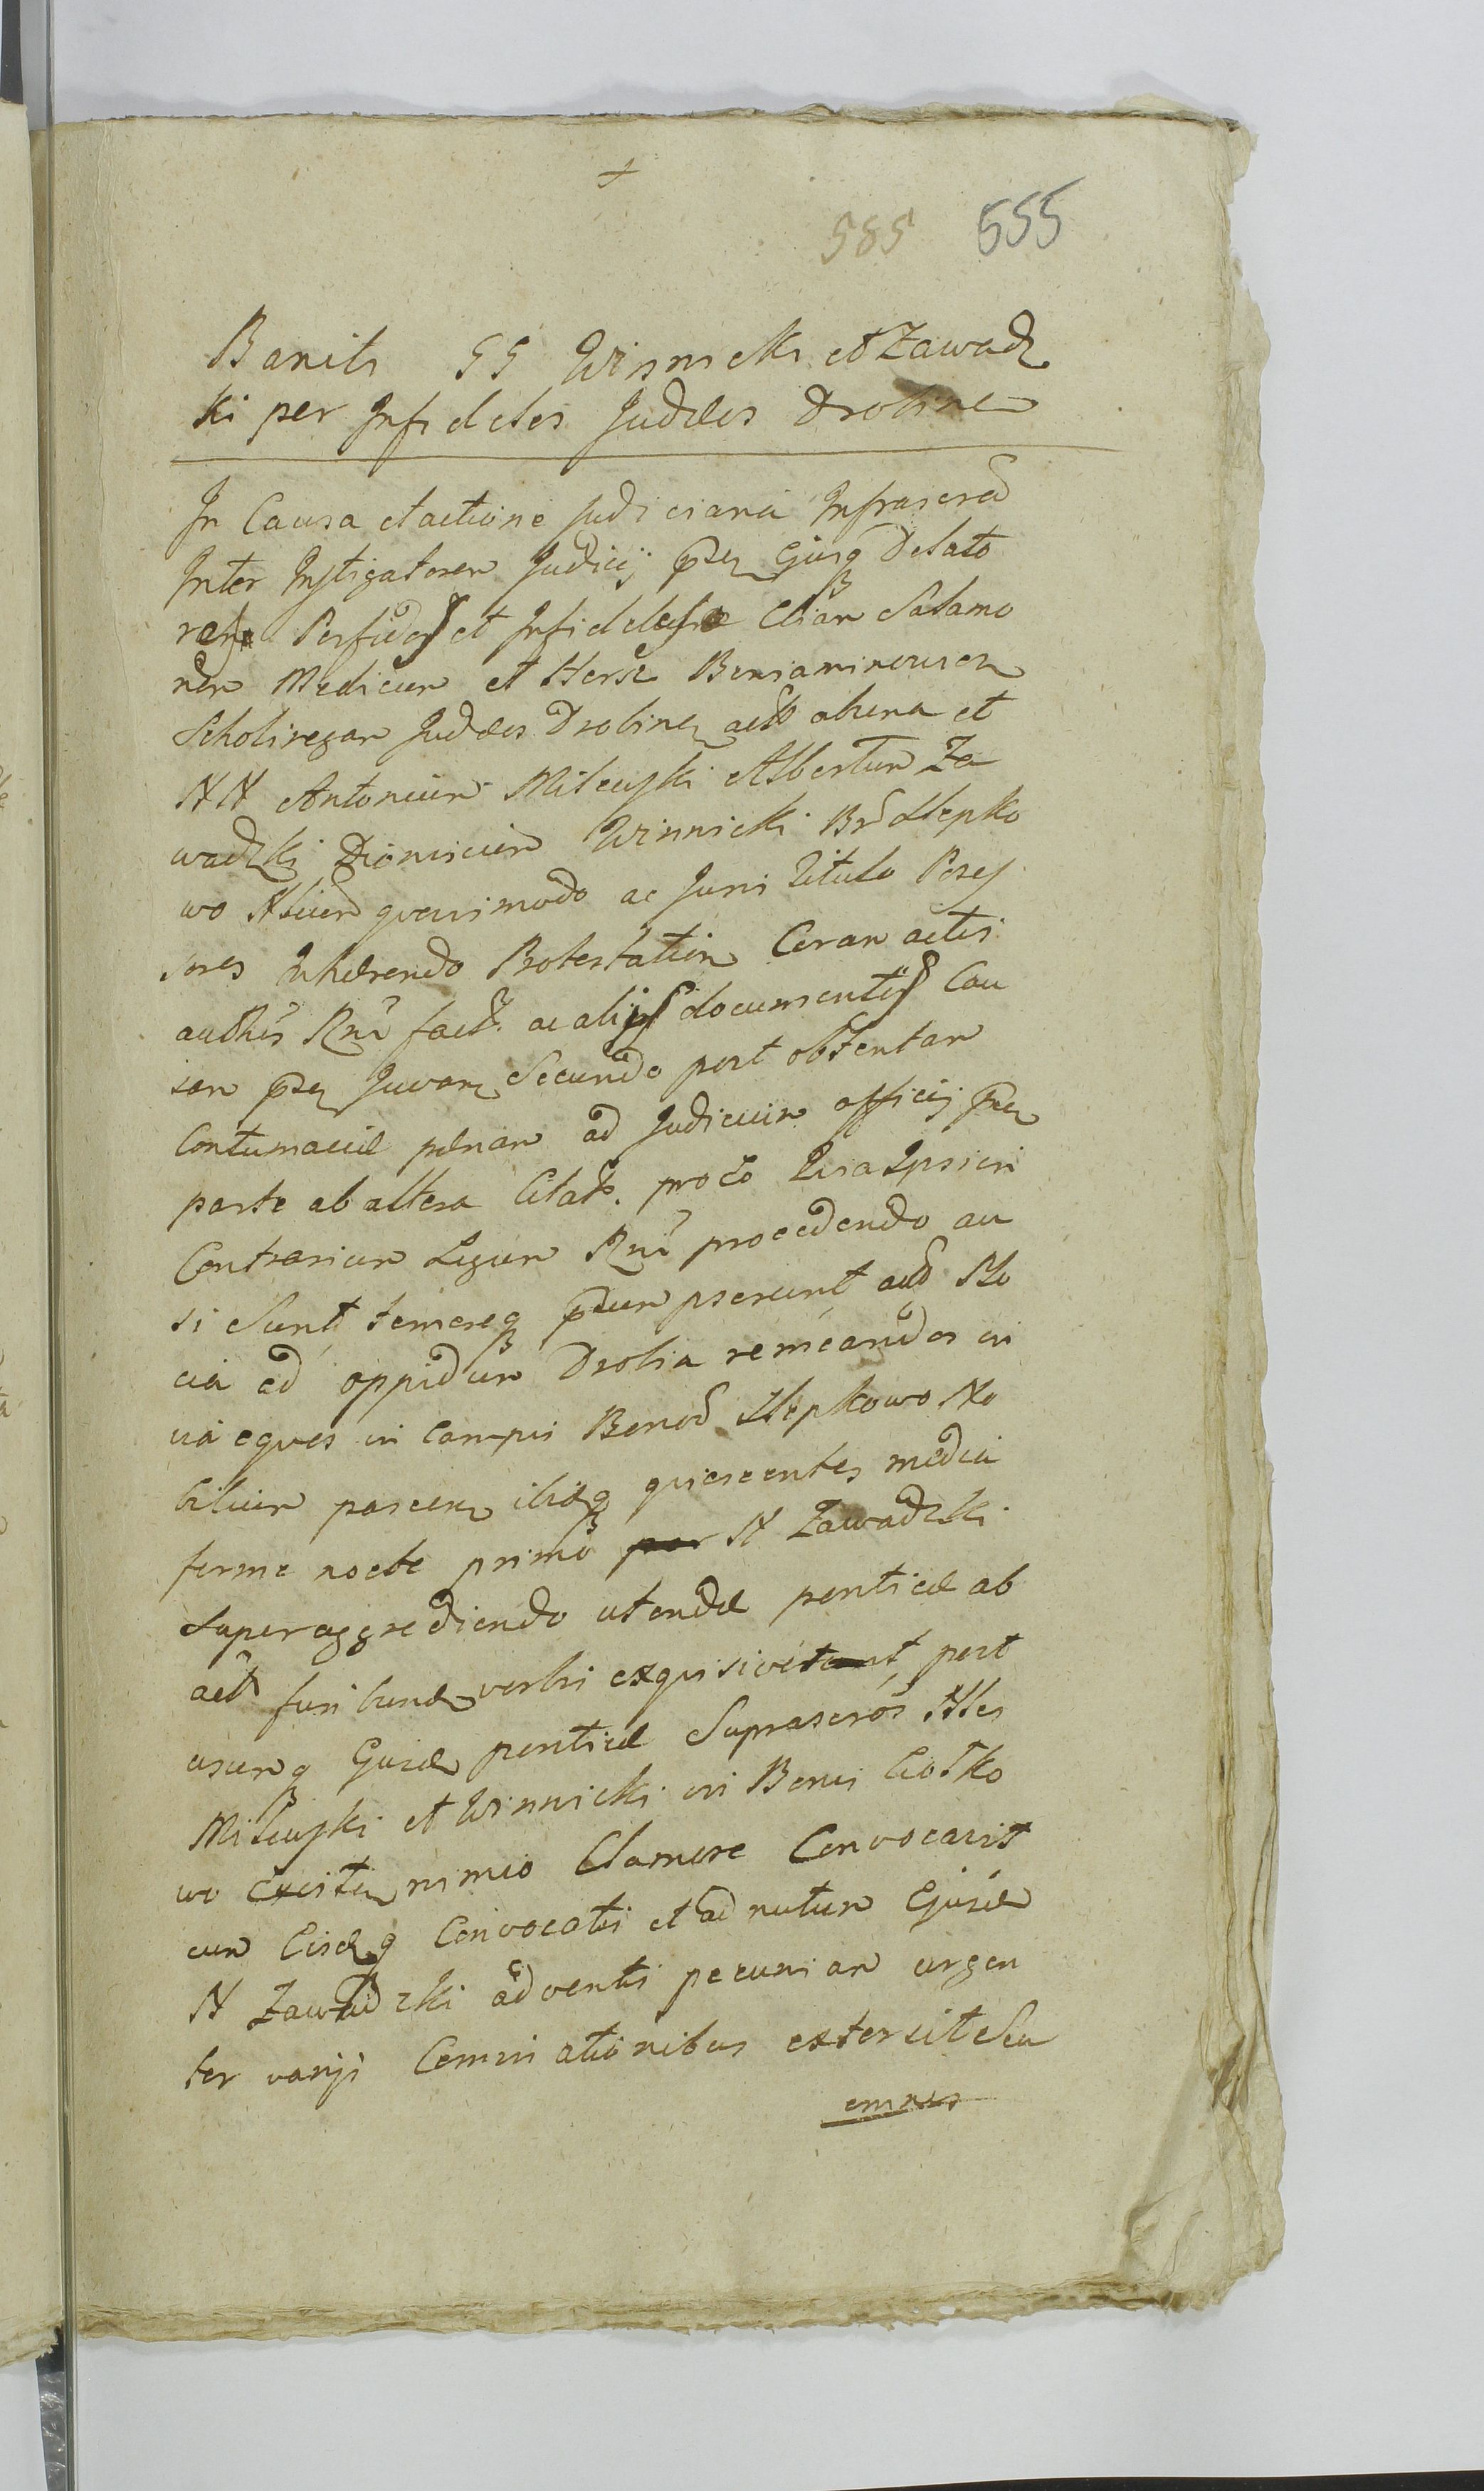 +
585 555
Banitio GG Winnicki et Zawadz
ki per Infideles Judæos Drobinen
In Causa et actione Judiciaria Infrascrã
Inter Instigatorem Judicij pñ Ejusq Delato
res Perfidos et Infideles Eliam Salamo
nem Medicum et Hersz Beniaminowicz
Scholiregam Judæos Drobinen act ab una et
NN Antonium Milewski Albertum Za
wadzki Dionisium Winnicki Br Slepko
wo Nlium quovimodo ac Juri Titulo Poses
sores Inhærendo Protestatioñ Coram actis
authcis Rni fact. ac alijs documentis Cau
sam pñ Juvan Secundo post obtentam
Contumaciæ pœnam ad Judicium officij pñ
parte ab altera Citat. pro eo Quia Ipsi in
Contrarium Legum Rni procedendo au
si Sunt temereq pdum pserunt act No
cia ad oppidum Drobin remeandos in
via eques in Campis Bonor Slepkowo No
bilium pascen ibiq quiescentes media
ferme nocte primo per N Zawadzki
Superaggrediendo utendæ penticæ ab
act furibund verbis exquisivit post
usumq Ejusd penticæ Suprascros Nles
Milewski et Winnicki in Bonis Cotko
wo Existen nimio Clamore Convocavit
cum Eisdq Convocatis et ad nutum Ejusd
N Zawadzki adventis pecuniam urgen
ter varijs Cominationibus extersit Seu
omnes